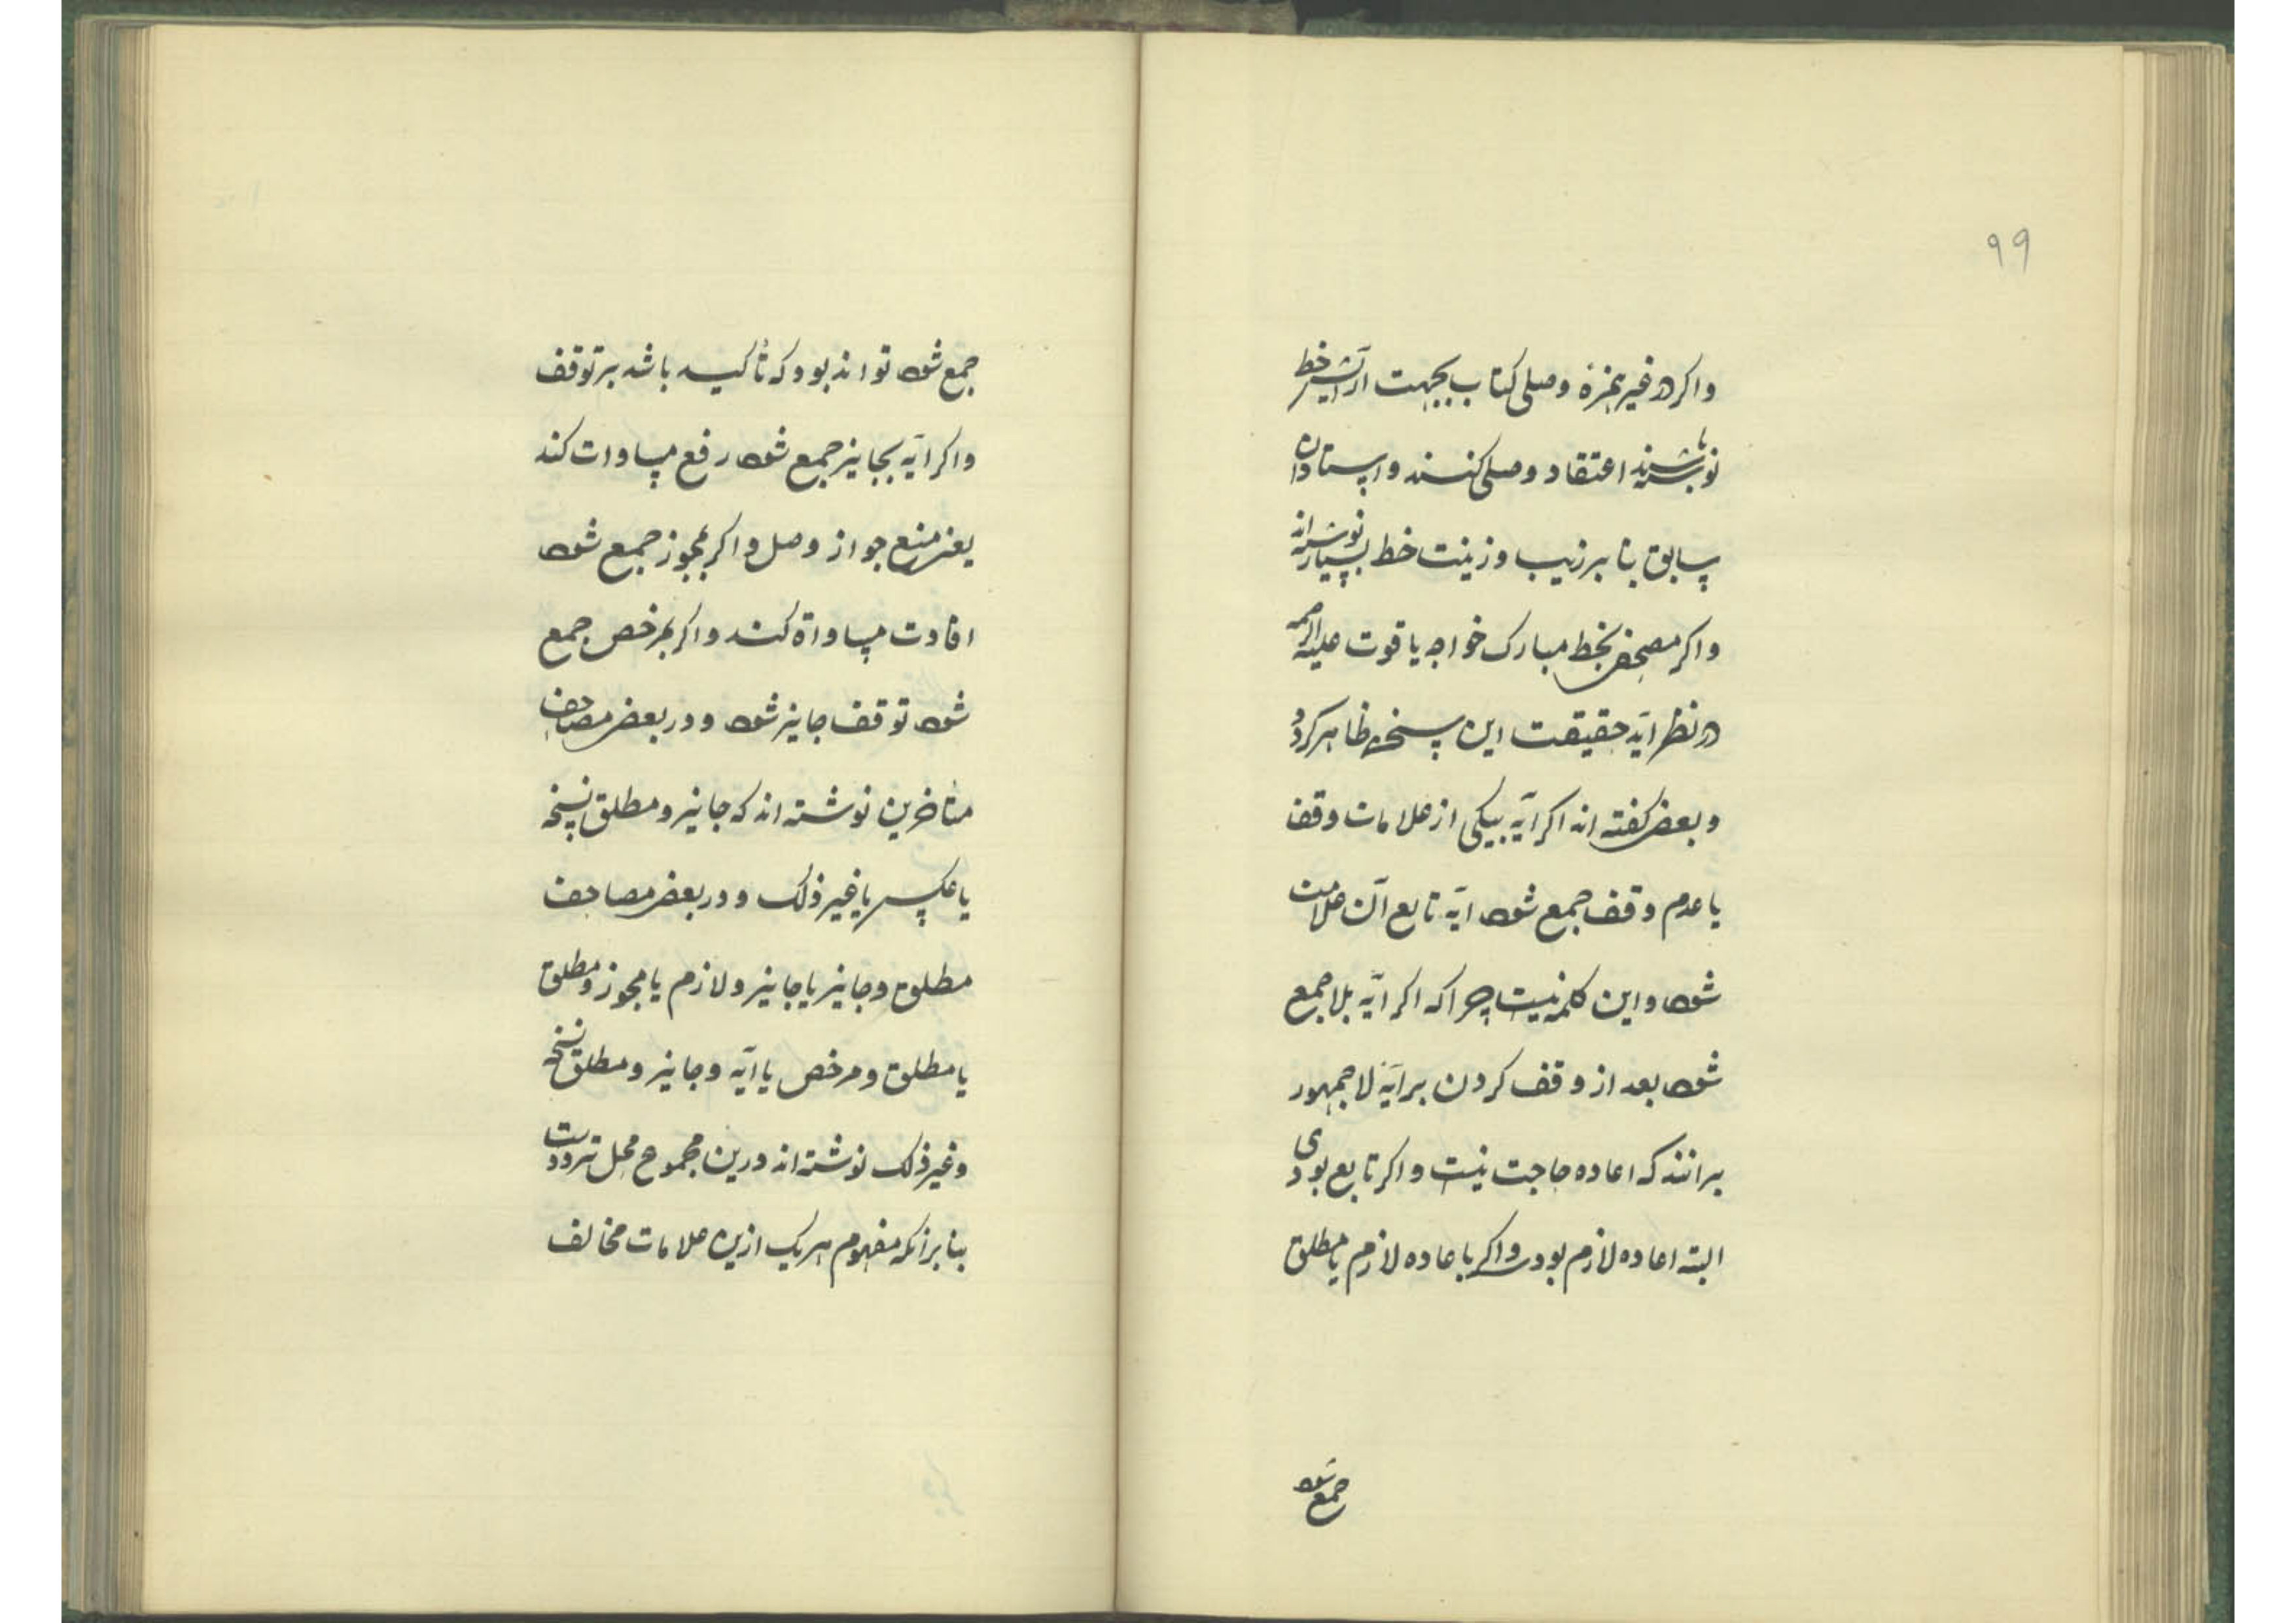 ۹۹
واکر در غیر همزهٔ وصلی کتاب بجهت آرایش خط
نوشته باشند اعتقاد وصلی کنند و استادان
سابق بنا بر زیب و زینت خط بسیار نوشته‌اند
واکر مصحفی بخط مبارک خواجه یاقوت علیه الرحمه
در نظر آید حقیقت این سخن ظاهر کردد
و بعضی کفته اند اکر آیه بیکی از علامات وقف
یا عدم وقف جمع شود آیه تابع آن علامت
شود و این کلمه نیست چرا که اکر آیه بلا جمع
شود بعد از وقف کردن بر آیهٔ لا جمهور
برانند که اعاده حاجت نیست واکر تابع بودی
البته اعاده لازم بودی واکر باعاده لازم یا مطلق
جمع شود
جمع شود تواند بود که تأکید باشد بر توقف
واکر آیه بجایز جمع شود رفع مساوات کند
یعنی منع جواز وصل واکر بمجوز جمع شود
افادت مساواة کند واکر بمرخص جمع
شود توقف جایز شود و در بعضی مصاحف
متاخرین نوشته اند که جایز و مطلق نسخه
یا عکس یا غیر ذلک و در بعضی مصاحف
مطلق و جایز یا جایز و لازم یا مجوز و مطلق
یا مطلق و مرخص یا آیه و جایز و مطلق نسخه
و غیر ذلک نوشته اند درین مجموع محل تردد است
بنا بر آنکه مفهوم هر یک ازین علامات مخالف